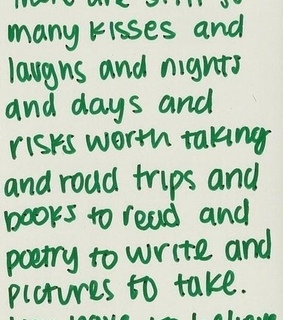 there are still so
many kisses and
laughs and nights
and days and
risks worth taking
and road trips and
books to read and
poetry to write and
pictures to take.